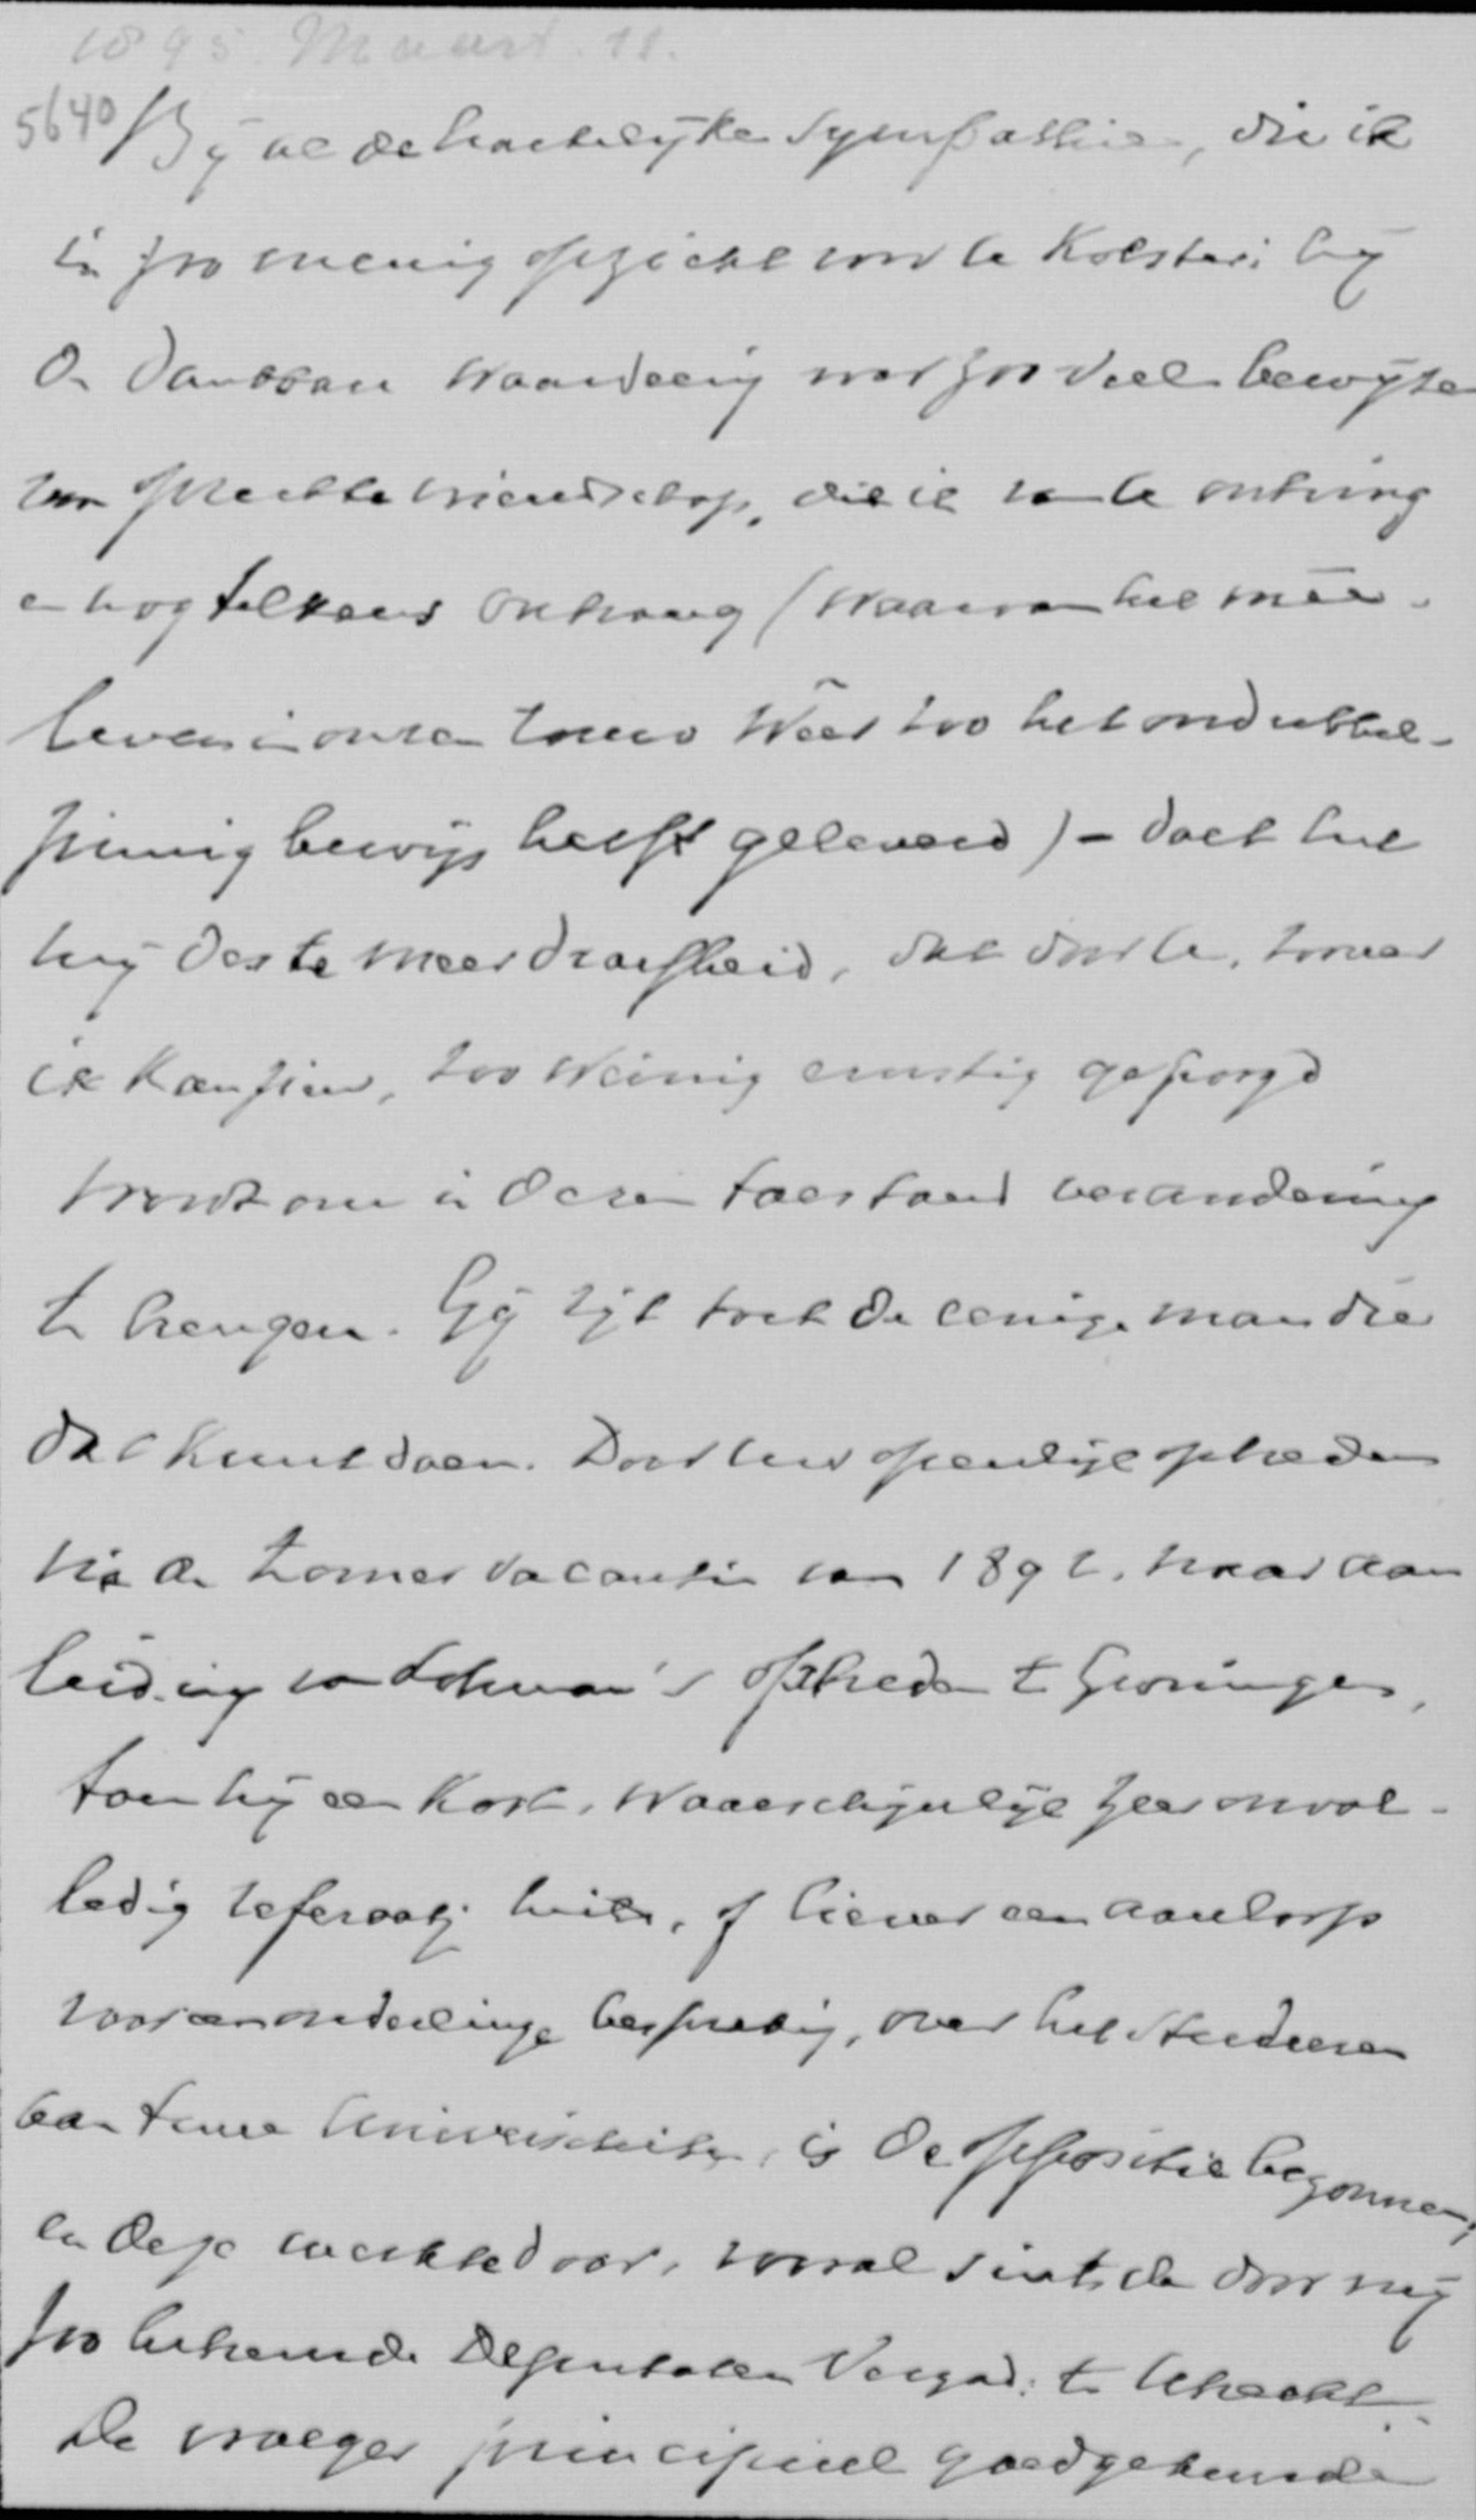 1895. Maart. 11.
5640 By al de hartelyke sympathie, die ik
in zoo menig opzicht voor U koester; by
de dankbare waardeering voor zoo veel bewyzen
van oprechte vriendschap, die ik van U ontving
en nog telkens ontvang (waarvan het meê-
leven in onzen rouw wéer zoo het ondubbel-
zinnig bewijs heeft geleverd) - doet het
mij des te meer droefheid, dat door U, zoover
ik kan zien, zoo weinig ernstig gezorgd
wordt om in dezen toestand verandering
te brengen. Gij zijt toch de eenige man die
dat kunt doen. Door uw openlijk optreden
na de zomervacantie van 1892, naar aan
leiding van Lohman's optreden te Groningen,
toen hij een kort, waarschijnlijk zeer onvol-
ledig referaatje hield, of liever een aanloop
voor een onderlinge bespreking, over het studeeren
aan Vrije Universiteiten, is de oppositie begonnen,
en deze werkte door, vooral sints de door mij
zoo betreurde Deputaten Vergad: te Utrecht.
De vroeger principieel goedgekeurde